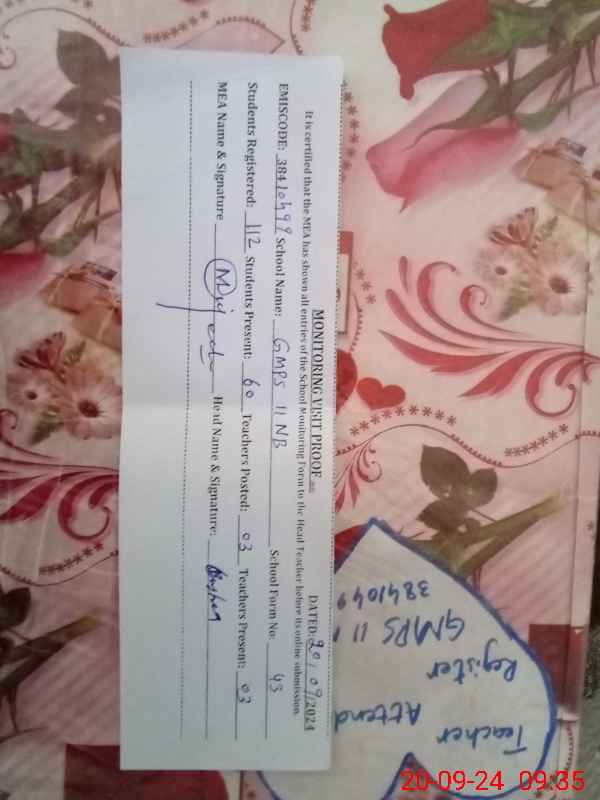 MONITORING VISIT PROOF
DATED: 20/09/2024
It is certified that the MEA has shown all entries of the School Monitoring Form to the Head Teacher before its online submission.
EMISCODE: 38410499 School Name: GMPS 11 NB School Form No: 43
Students Registered: 112 Students Present: 60 Teachers Posted: 03 Teachers Present: 03
MEA Name & Signature Head Name & Signature:
Teacher
Attend
Register
GMPS 11
3841049
20-09-24 09:35